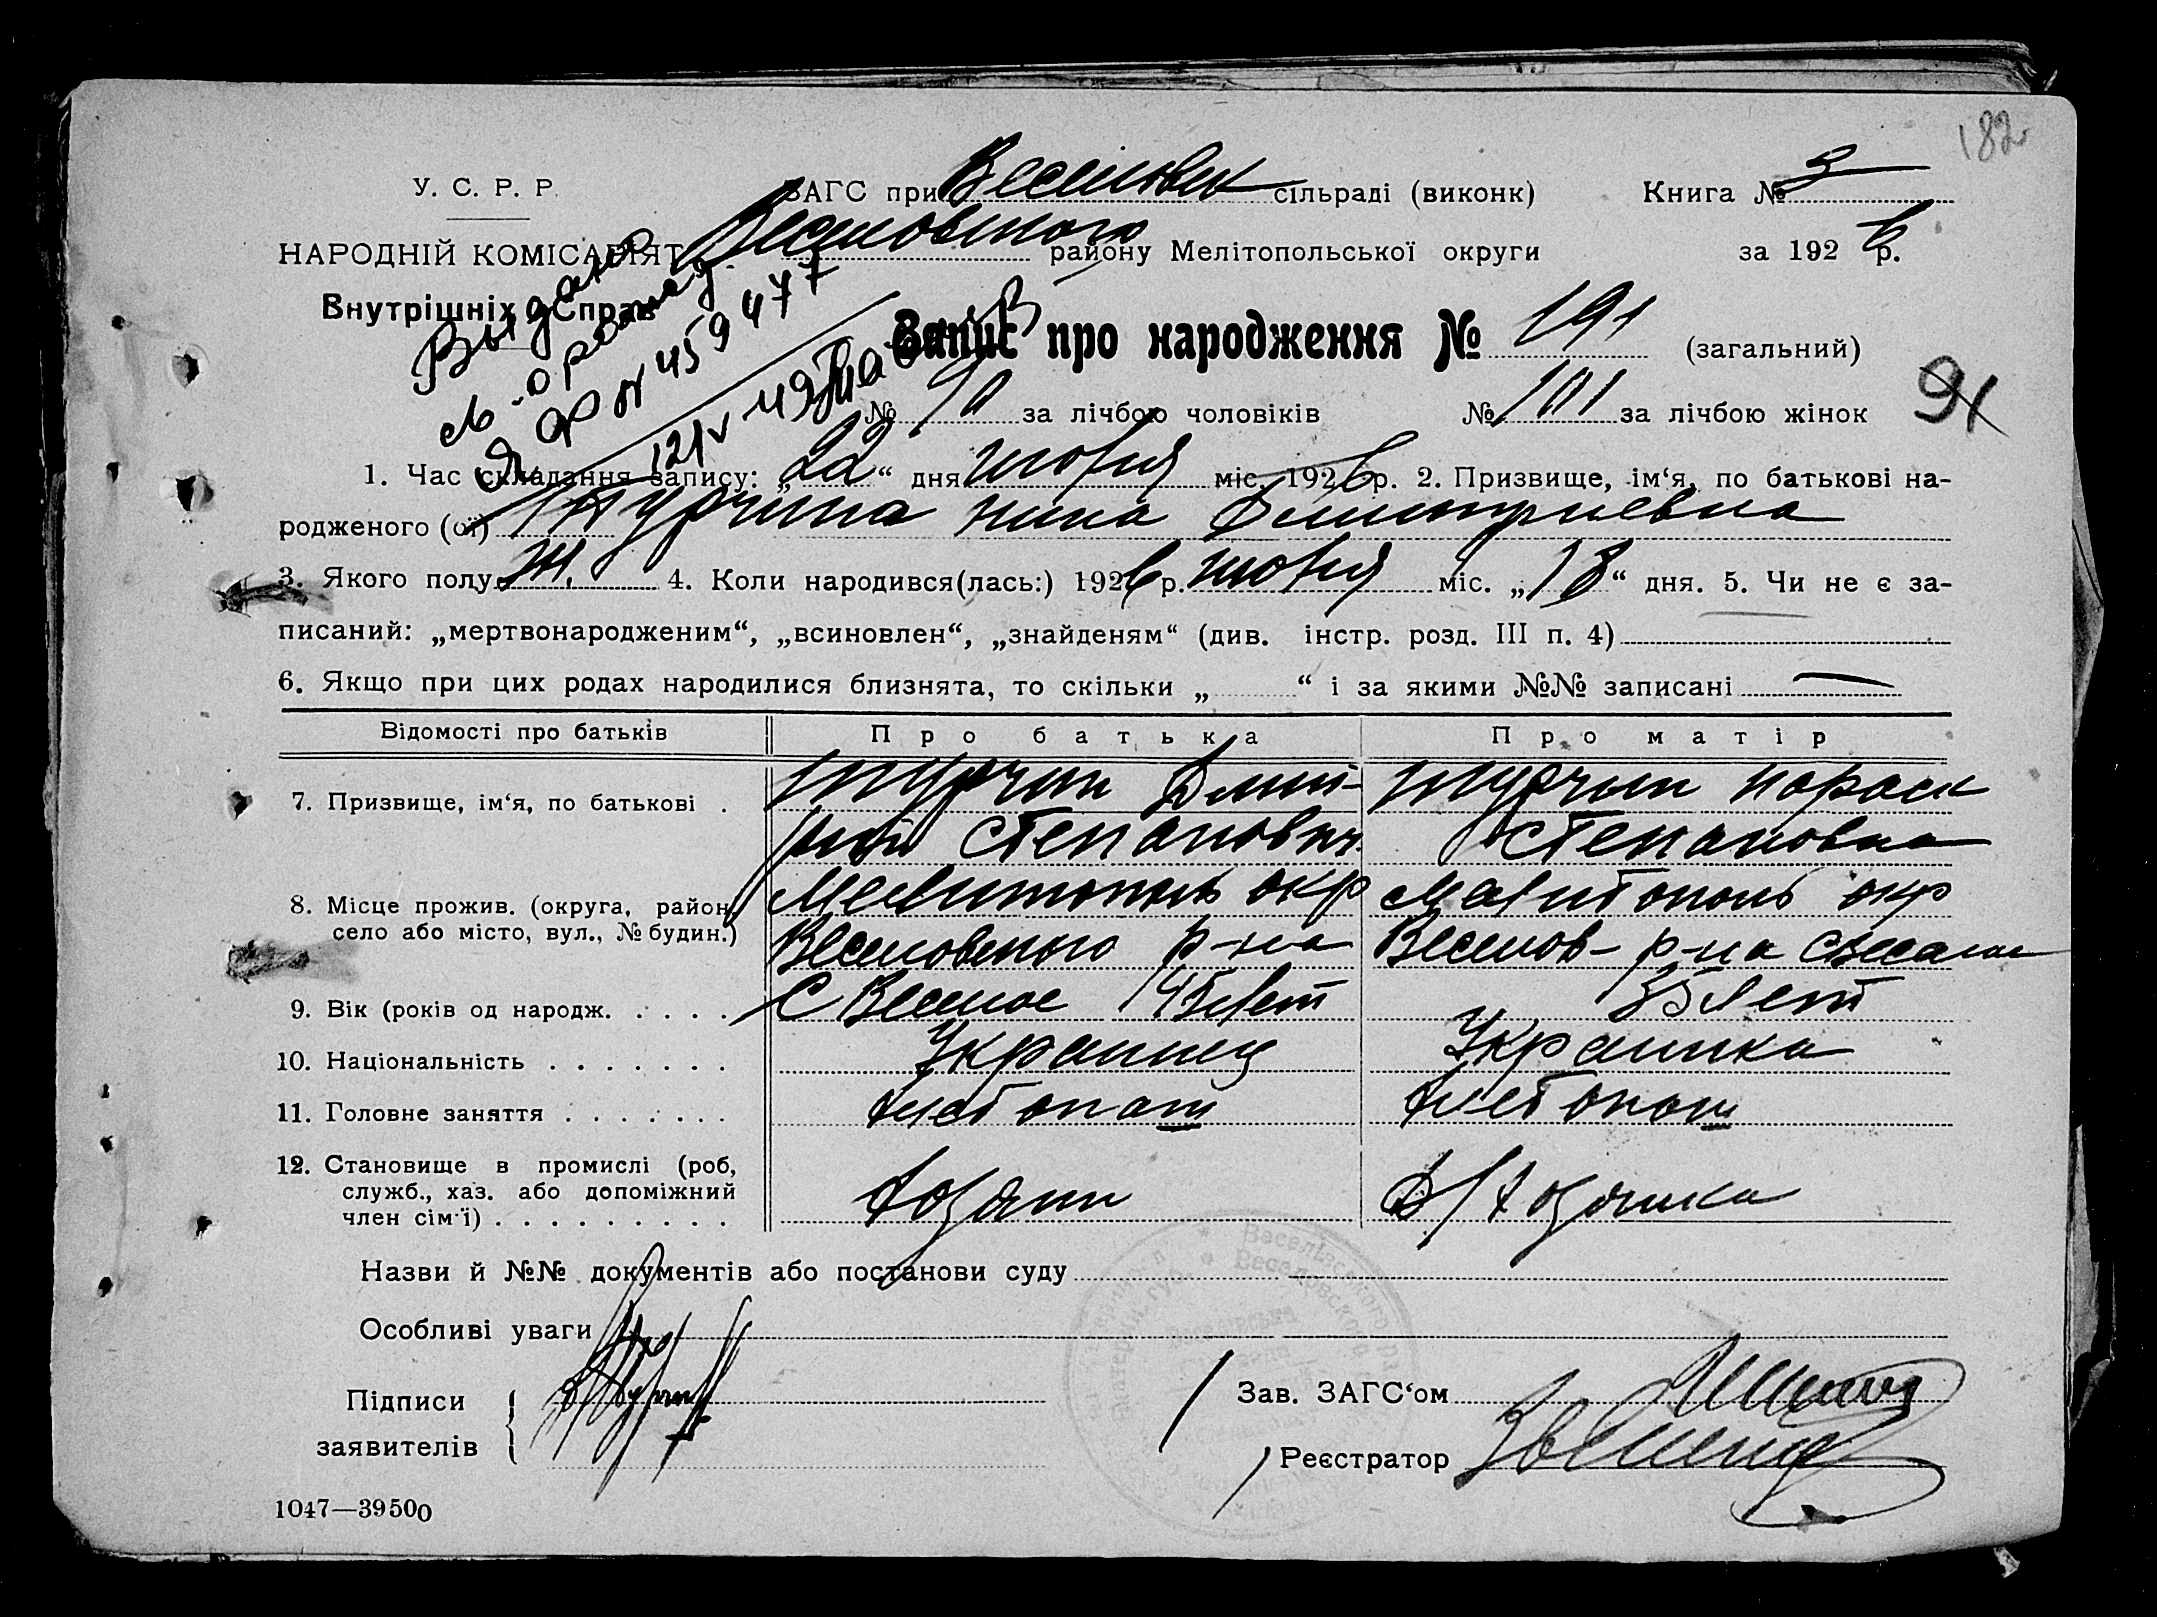 182
У. С. Р. Р.
ЗАГС при Веселовск сільраді (виконк) Книга № 3
НАРОДНІЙ КОМІСАРІЯТ Веселовского району Мелітопольської округи за 1926 р.
Внутрішніх Справ
Выдано
459477
Запис про народження № 191 (загальний)
№ 90 за лічбою чоловіків № 101 за лічбою жінок
91
1. Час складання запису: „22“ дня июня міс. 1926 р. 2. Призвище, ім‘я, по батькові на-
родженого (ої) Турчина Нина Димитриевна
3. Якого полу ж. 4. Коли народився(лась:) 1926 р. июня міс. „18“ дня. 5. Чи не є за-
писаний: „мертвонародженим“, „всиновлен“, „знайденям“ (див. інстр. розд. III п. 4)
6. Якщо при цих родах народилися близнята, то скільки „ “ і за якими №№ записані —
Відомості про батьків Про батька Про матір
7. Призвище, ім‘я, по батькові . Турчин Дмит- Турчин Параск
рий Степанович Степановна
8. Місце прожив. (округа, район, Мелитополь окр Мелитополь окр
село або місто, вул., № будин.) Веселовского р-на Веселов- р-на с Веселое
9. Вік (років од народж. . . . . С Веселое 45 лет 35 лет
10. Національність . . . . . . . Украинец Украинка
11. Головне заняття . . . . . . . Хлебопаш Хлебопаш
12. Становище в промислі (роб,
служб., хаз. або допоміжний Хозяин Д/Хозяика
член сім‘ї) . . . . . . . . .
Назви й №№ документів або постанови суду
Особливі уваги
Підписи
заявителів
Зав. ЗАГС‘ом
Реєстратор
1047—39500